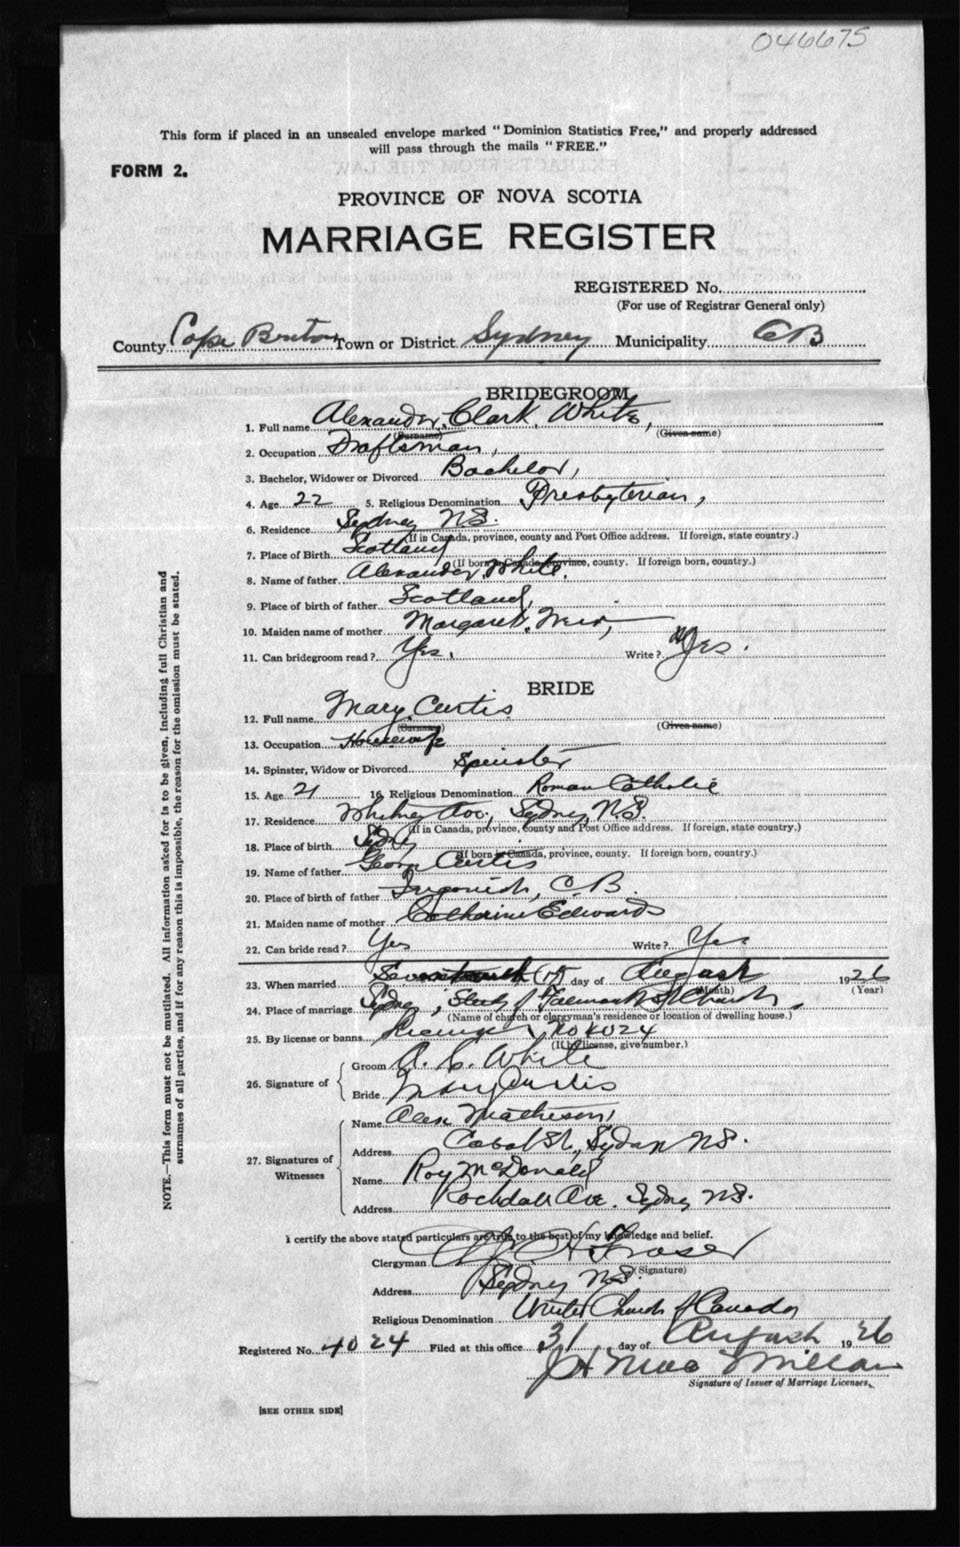 046675
This form if placed in an unsealed envelope marked "Dominion Statistics Free," and properly addressed
will pass through the mails "FREE."
FORM 2.
PROVINCE OF NOVA SCOTIA
MARRIAGE REGISTER
REGISTERED No.
(For use of Registrar General only)
County Cape Breton Town or District Sydney Municipality CB
BRIDEGROOM
1. Full name Alexander Clark White,
(Surname) (Given name)
2. Occupation Draftsman,
3. Bachelor, Widower or Divorced Bachelor,
4. Age 22 5. Religious Denomination Presbyterian,
6. Residence Sydney NS.
(If in Canada, province, county and Post Office address. If foreign, state country.)
7. Place of Birth Scotland
(If born in Canada, province, county. If foreign born, country.)
8. Name of father Alexander White.
9. Place of birth of father Scotland,
10. Maiden name of mother Margaret Weir,
11. Can bridegroom read? Yes, Write? Yes.
BRIDE
12. Full name Mary Curtis
(Surname) (Given name)
13. Occupation Housewife
14. Spinster, Widow or Divorced Spinster
15. Age 21 16. Religious Denomination Roman Catholic
17. Residence Whitney Ave., Sydney, NS.
(If in Canada, province, county and Post Office address. If foreign, state country.)
18. Place of birth Sydney
(If born in Canada, province, county. If foreign born, country.)
19. Name of father George Curtis
20. Place of birth of father Ingonish, C B.
21. Maiden name of mother Catherine Edwards
22. Can bride read? Yes Write? Yes
23. When married Seventeenth (17) day of August 1926
(Month) (Year)
24. Place of marriage Sydney, Study of Falmouth St Church,
(Name of church or clergyman's residence or location of dwelling house.)
25. By license or banns License, No 4024
(If by license, give number.)
26. Signature of Groom A. C. White
Bride Mary Curtis
27. Signatures of Witnesses Name Alex Matheson,
Address Cabot St., Sydney NS.
Name Roy McDonald
Address Rockdale Ave. Sydney NS.
I certify the above stated particulars are true to the best of my knowledge and belief.
Clergyman Fraser
(Signature)
Address Sydney NS.
Religious Denomination United Church of Canada
Registered No. 4024 Filed at this office 31 day of August 1926
J H MacMillan
Signature of Issuer of Marriage Licenses.
[SEE OTHER SIDE]
NOTE.—This form must not be mutilated. All information asked for is to be given, including full Christian and
surnames of all parties, and if for any reason this is impossible, the reason for the omission must be stated.